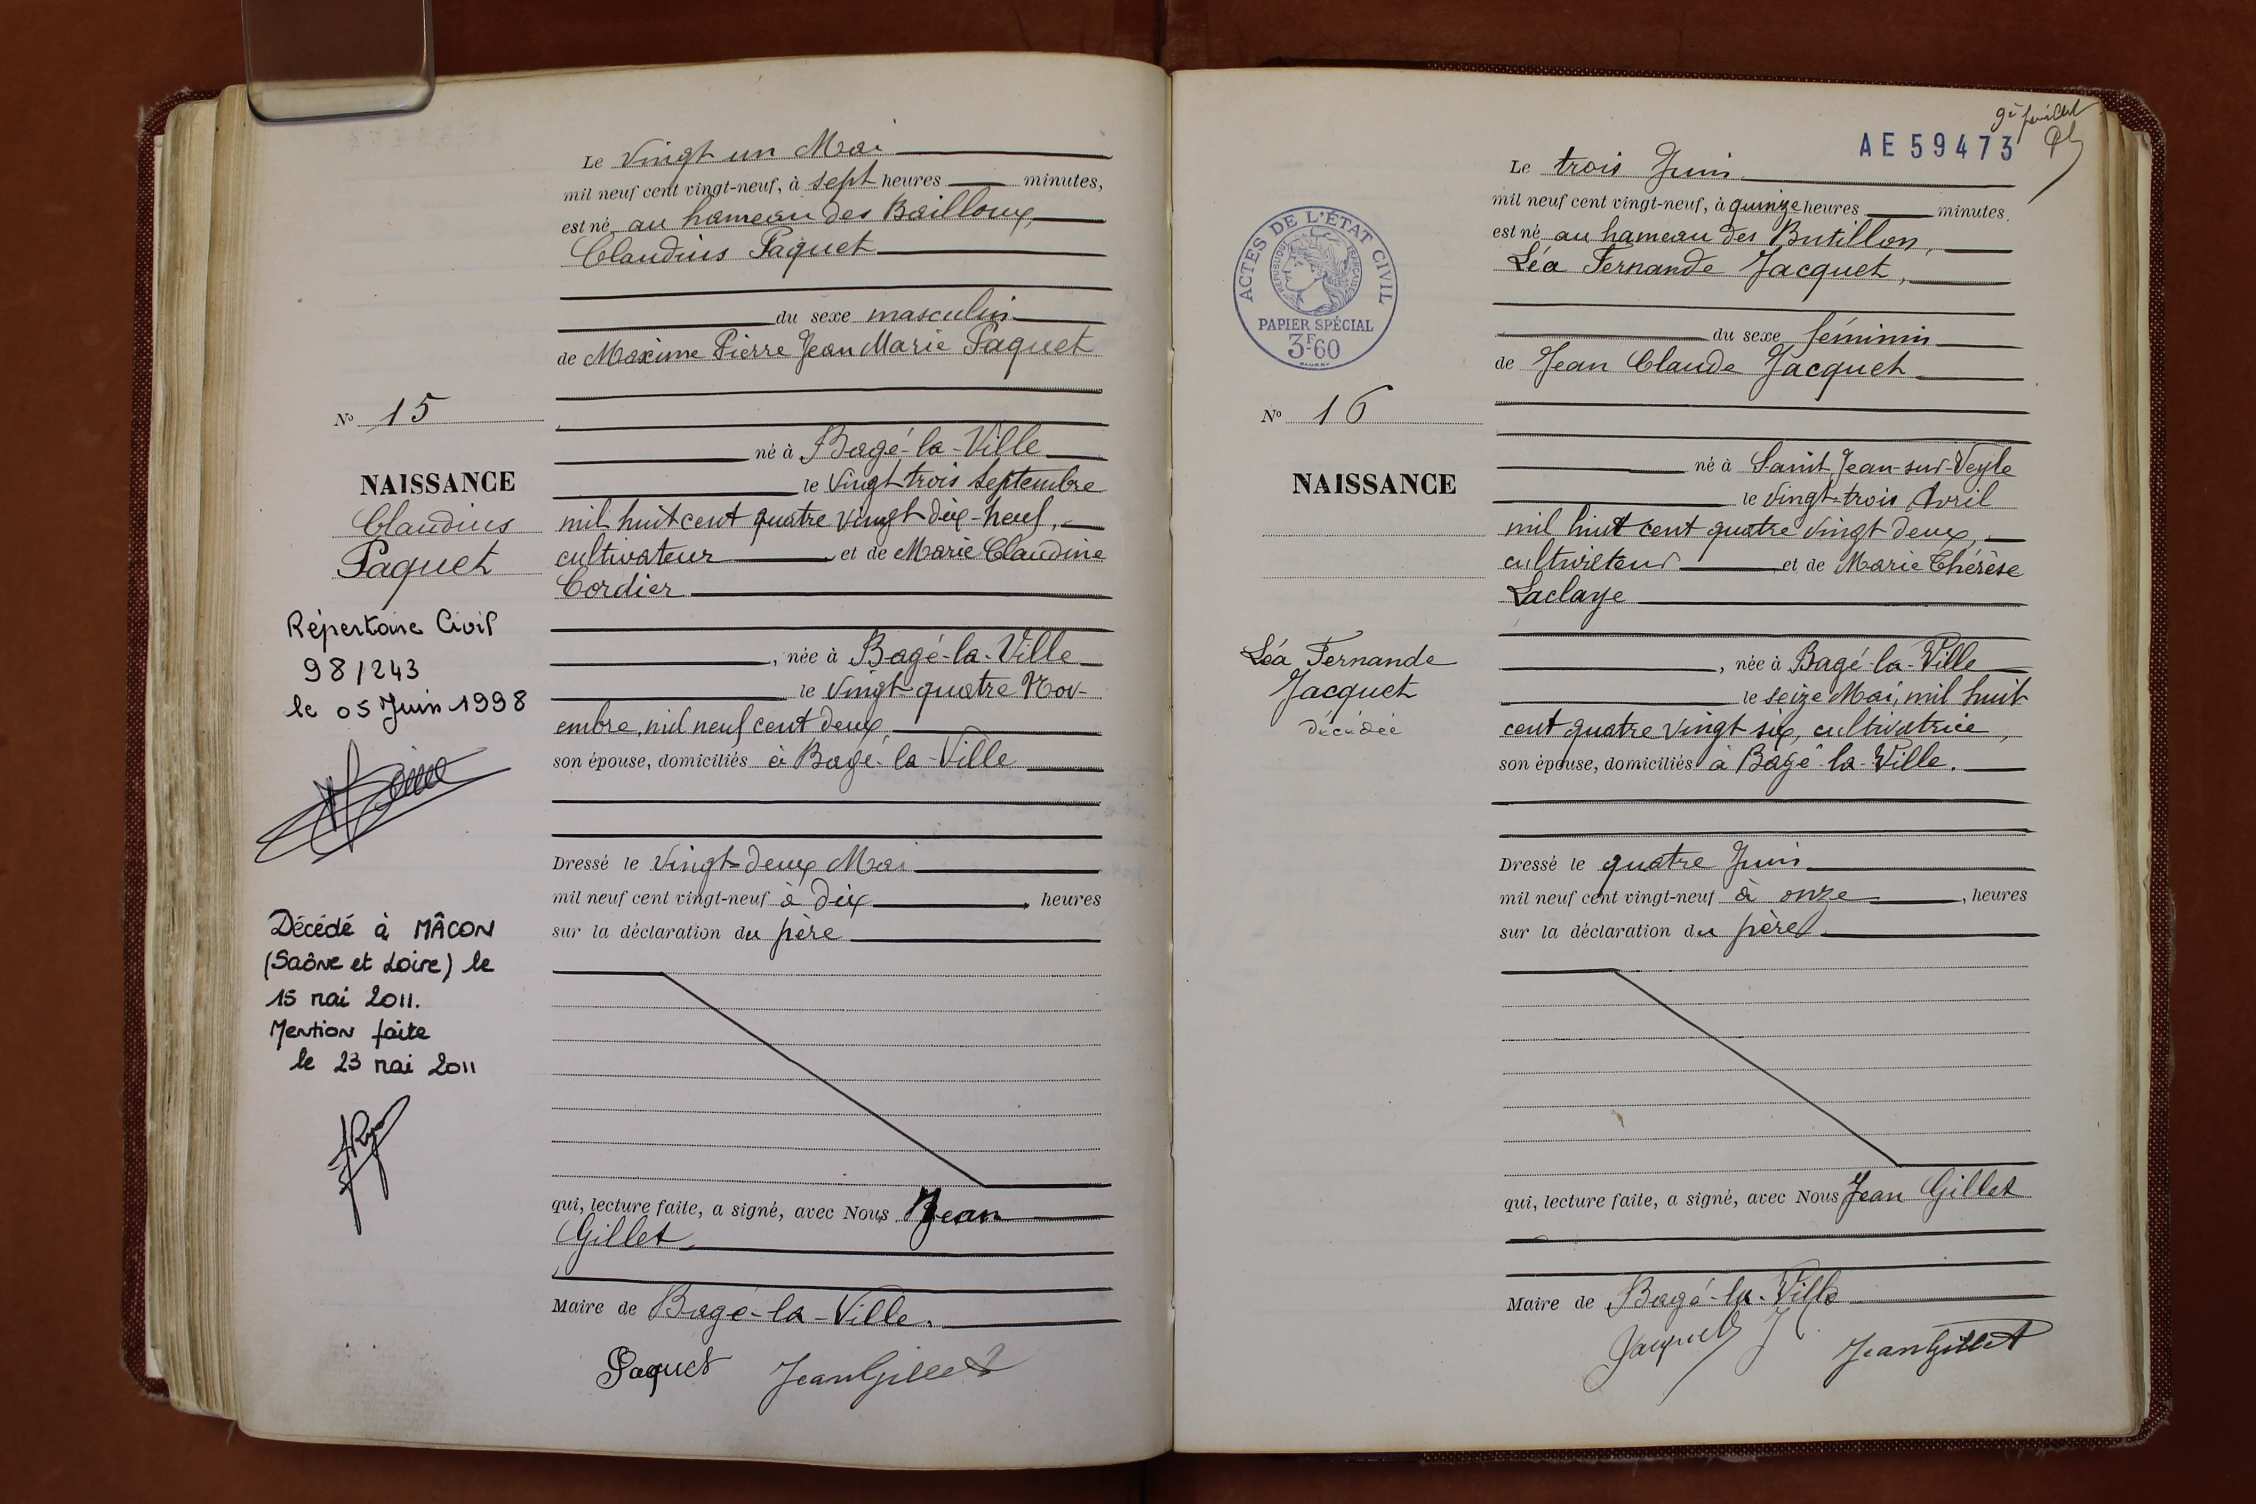 Le vingt un Mai
mil neuf cent vingt-neuf, à sept heures minutes,
est né au hameau des Bailloux,
Claudius Paquet
du sexe masculin
de Maxime Pierre Jean Marie Paquet
N° 15
né à Bagé-la-Ville
le vingt trois septembre
NAISSANCE
Claudius
Paquet
mil huit cent quatre vingt dix-neuf,
cultivateur et de Marie Claudine
Cordier
Répertoire Civil
98/243
le 05 Juin 1998
, née à Bagé-la-Ville
le vingt quatre Nov-
embre, mil neuf cent deux,
son épouse, domiciliés à Bagé-la-Ville
Dressé le vingt-deux Mai
mil neuf cent vingt-neuf à dix, heures
sur la déclaration du père
Décédé à MÂCON
(Saône et Loire) le
15 mai 2011.
Mention faite
le 23 mai 2011
qui, lecture faite, a signé, avec Nous Jean
Gillet,
Maire de Bagé-la-Ville.
Paquet JeanGillet
9è feuillet
AE59473
Le trois Juin
mil neuf cent vingt-neuf, à quinze heures minutes.
est né au hameau des Butillon,
Léa Fernande Jacquet,
ACTES DE L'ÉTAT CIVIL
RÉPUBLIQUE FRANÇAISE
PAPIER SPÉCIAL
3F.60
du sexe féminin
de Jean Claude Jacquet
N° 16
né à Saint Jean-sur-Veyle
le vingt-trois Avril
NAISSANCE
mil huit cent quatre vingt deux,
cultivateur et de Marie Thérèse
Laclaye
Léa Fernande
Jacquet
décédée
, née à Bagé-la-Ville
le seize Mai, mil huit
cent quatre vingt six, cultivatrice,
son épouse, domiciliés à Bagé-la-Ville.
Dressé le quatre Juin
mil neuf cent vingt-neuf à onze, heures
sur la déclaration du père
qui, lecture faite, a signé, avec Nous Jean Gillet
Maire de Bagé-la-Ville
Jacquet J JeanGillet